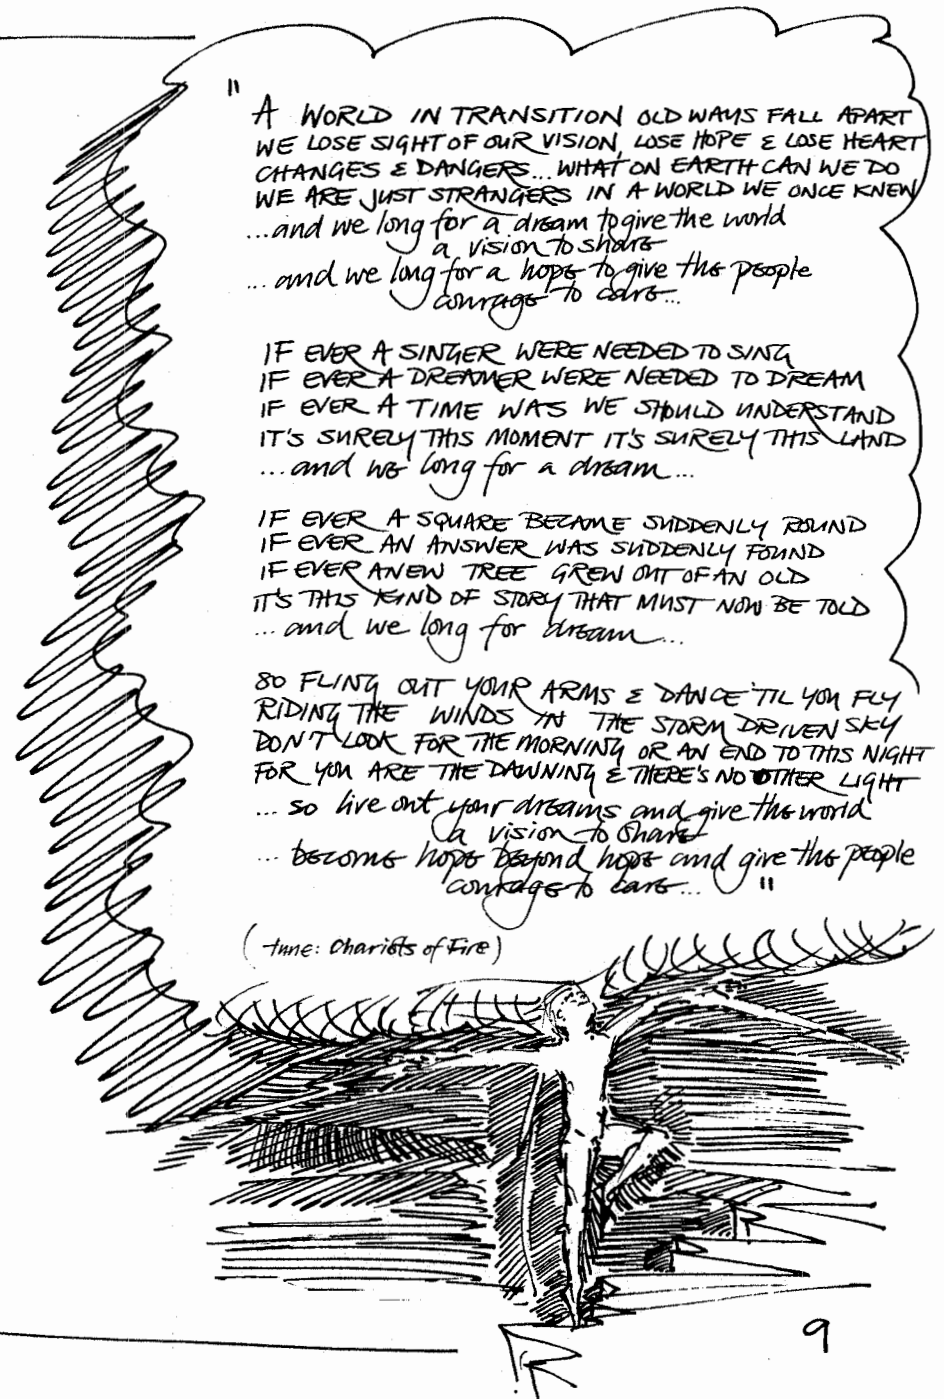 "
A WORLD IN TRANSITION OLD WAYS FALL APART
WE LOSE SIGHT OF OUR VISION, LOSE HOPE & LOSE HEART
CHANGES & DANGERS... WHAT ON EARTH CAN WE DO
WE ARE JUST STRANGERS IN A WORLD WE ONCE KNEW
...and we long for a dream to give the world
a vision to share
...and we long for a hope to give the people
courage to care...
IF EVER A SINGER WERE NEEDED TO SING
IF EVER A DREAMER WERE NEEDED TO DREAM
IF EVER A TIME WAS WE SHOULD UNDERSTAND
IT'S SURELY THIS MOMENT IT'S SURELY THIS LAND
...and we long for a dream...
IF EVER A SQUARE BECAME SUDDENLY ROUND
IF EVER AN ANSWER WAS SUDDENLY FOUND
IF EVER A NEW TREE GREW OUT OF AN OLD
IT'S THIS KIND OF STORY THAT MUST NOW BE TOLD
...and we long for dream...
SO FLING OUT YOUR ARMS & DANCE 'TIL YOU FLY
RIDING THE WINDS IN THE STORM DRIVEN SKY
DON'T LOOK FOR THE MORNING OR AN END TO THIS NIGHT
FOR YOU ARE THE DAWNING & THERE'S NO OTHER LIGHT
...so live out your dreams and give the world
a vision to share
...become hope beyond hope and give the people
courage to care... "
(tune: Chariots of Fire)
9